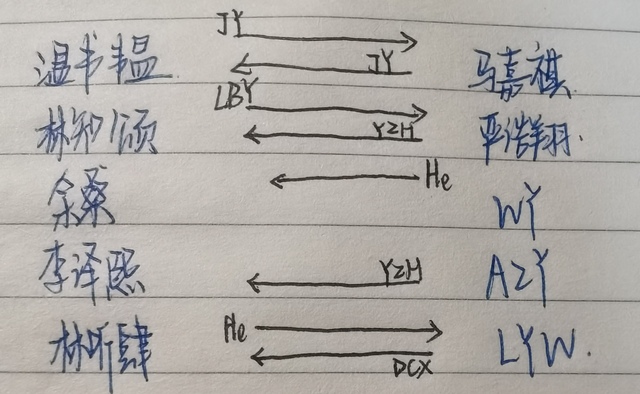 JY
温书韫 JY 马嘉祺
LBY
林知颂 YZH 严浩翔.
余桑 He WY
李译熙 YZH AZY
林听肆 He DCX LYW.